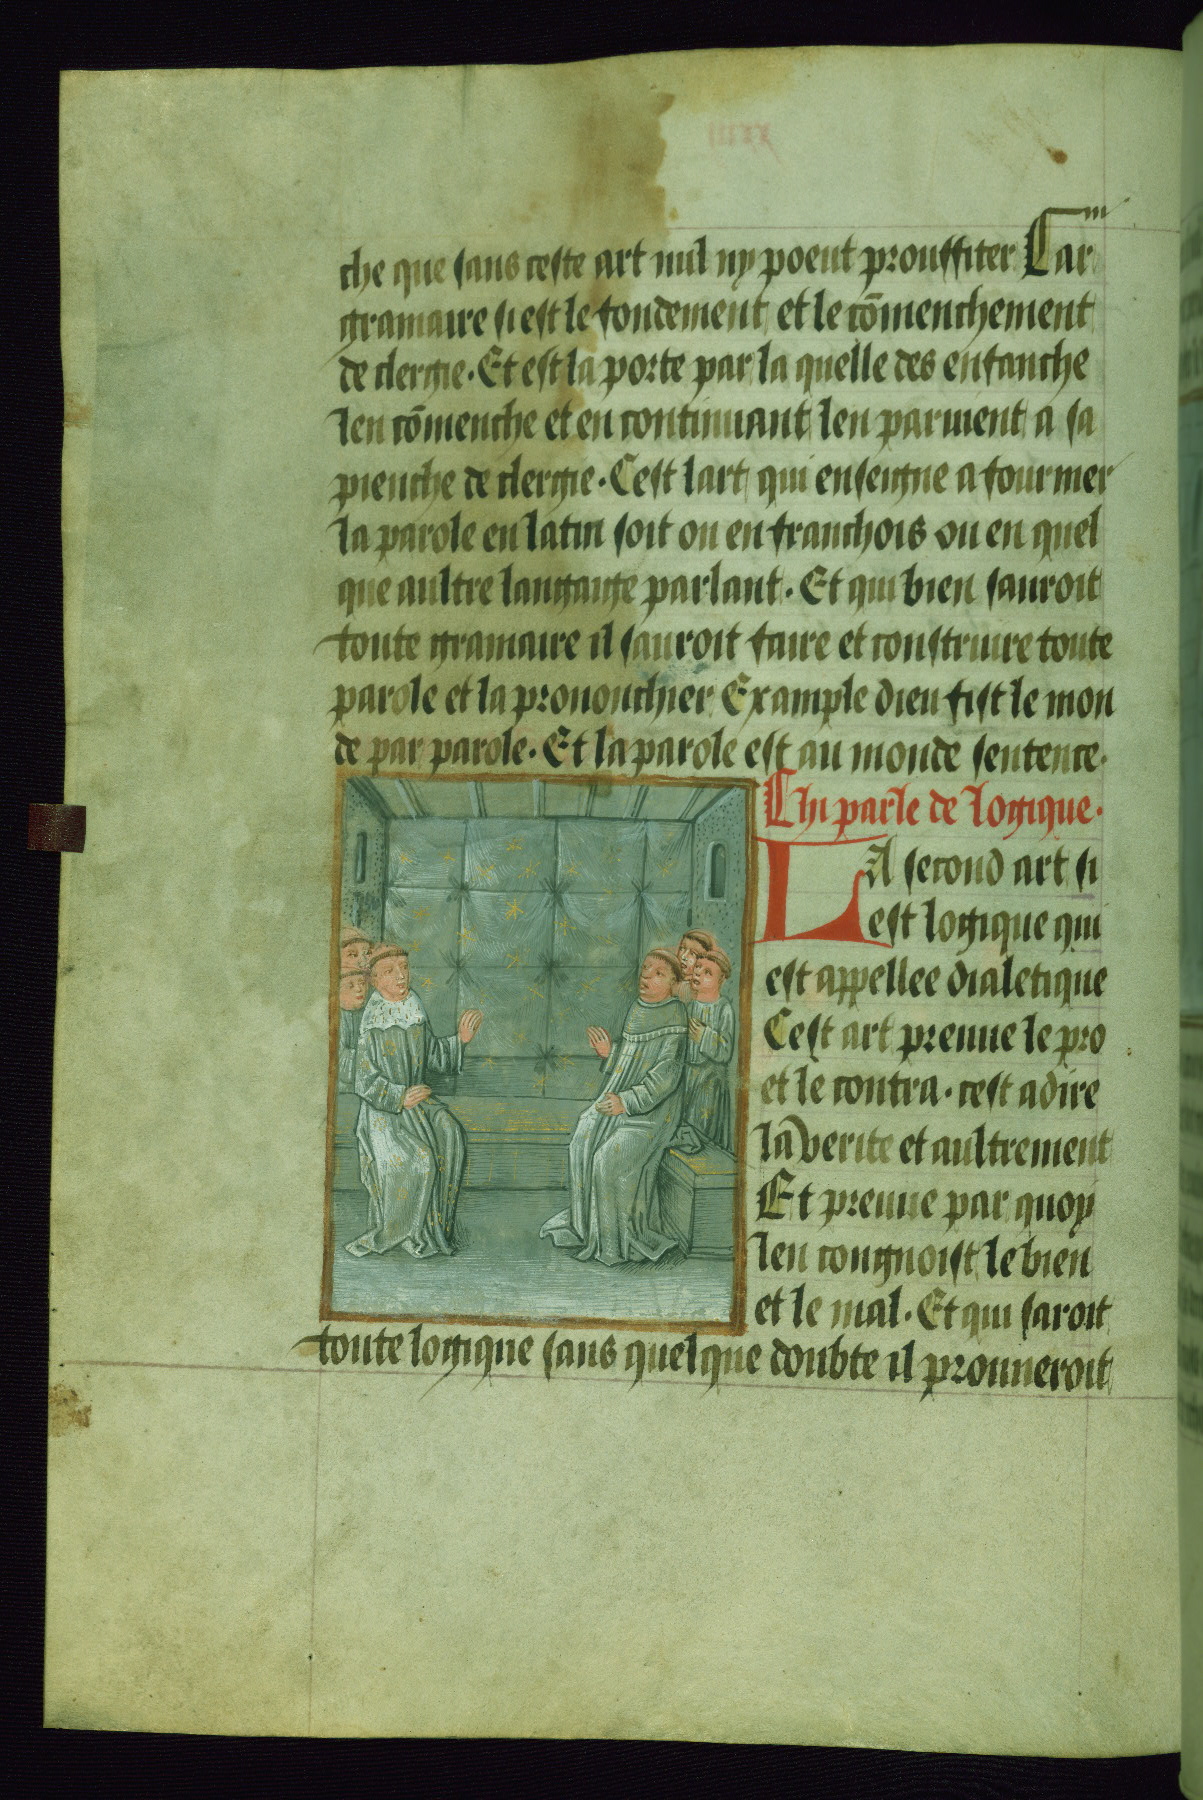 che que sans ceste art nul ny poeut prouffiter Car
gramaire si est le fondement et le cōmenchement
de clergie. Et est la porte par la quelle des enfanche
len cōmenche et en continuant len parvient a sa
pienche de clergie. Cest lart qui enseigne a fourmer
la parole en latin soit ou en franchois ou en quel
que aultre langaige parlant. Et qui bien sauroit
toute gramaire il sauroit faire et construire toute
parole et la prononchier Example dieu fist le mon
de par parole. Et la parole est au monde sentence.
Chi parle de logique.
LA second art si
est logique qui
est appellee dialetique
Cest art preuue le pro
et le contra. cest adire
la verite et aultrement
Et preuue par quoy
len congnoist le bien
et le mal. Et qui saroit
toute logique sans quelque doubte il prouueroit